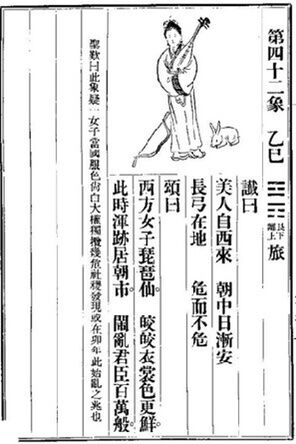 第四十二象 乙巳 艮下離上 旅
讖曰
美人自西來 朝中日漸安
長弓在地 危而不危
頌曰
西方女子琵琶仙 皎皎衣裳色更鮮
此時渾跡居朝市 鬧亂君臣百萬般
聖歎曰此象疑一女子當國服色尚白大權獨攬幾危社稷發現或在卯年此始亂之兆也